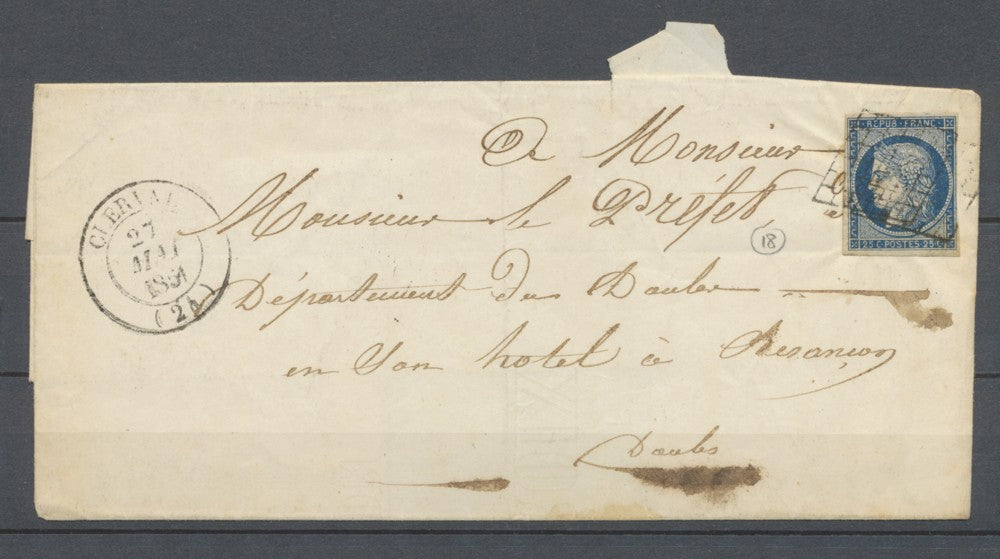 A Monsieur
Monsieur le Préfet
Département du Doubs
en son hotel à Besançon
Doubs
CLERVAL
27
MAI
1851
(24)
REPUB. FRANC.
25 C. POSTES 25 C.
18